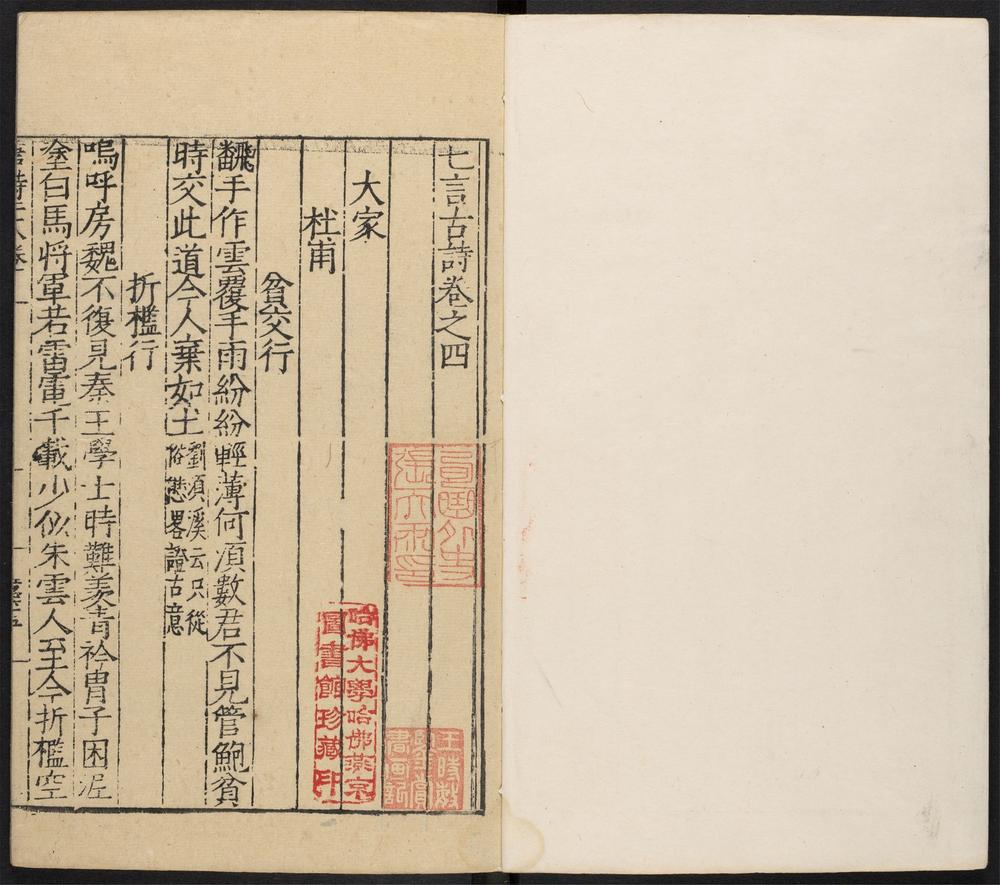 七言古詩卷之四
大家
杜甫
貧交行
飜手作雲覆手雨紛紛輕薄何湏數君不見管鮑貧
時交此道今人棄如土劉湏溪云只從
俗態畧證古意
折檻行
嗚呼房魏不復見秦王學士時難羨青衿胄子困泥
塗白馬將軍若雷電千載少似朱雲人至今折檻空
哈佛大學哈佛燕京
圖書館珍藏印